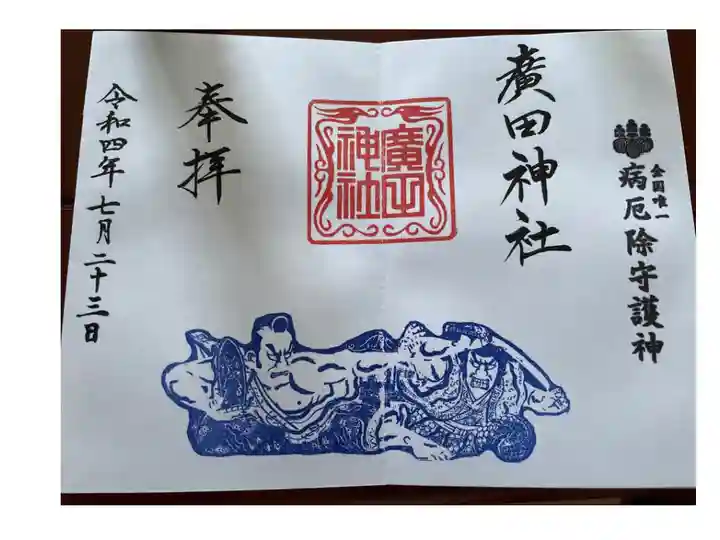 全国唯一
病厄除守護神
廣田神社
廣田
神社
奉拝
令和四年七月二十三日